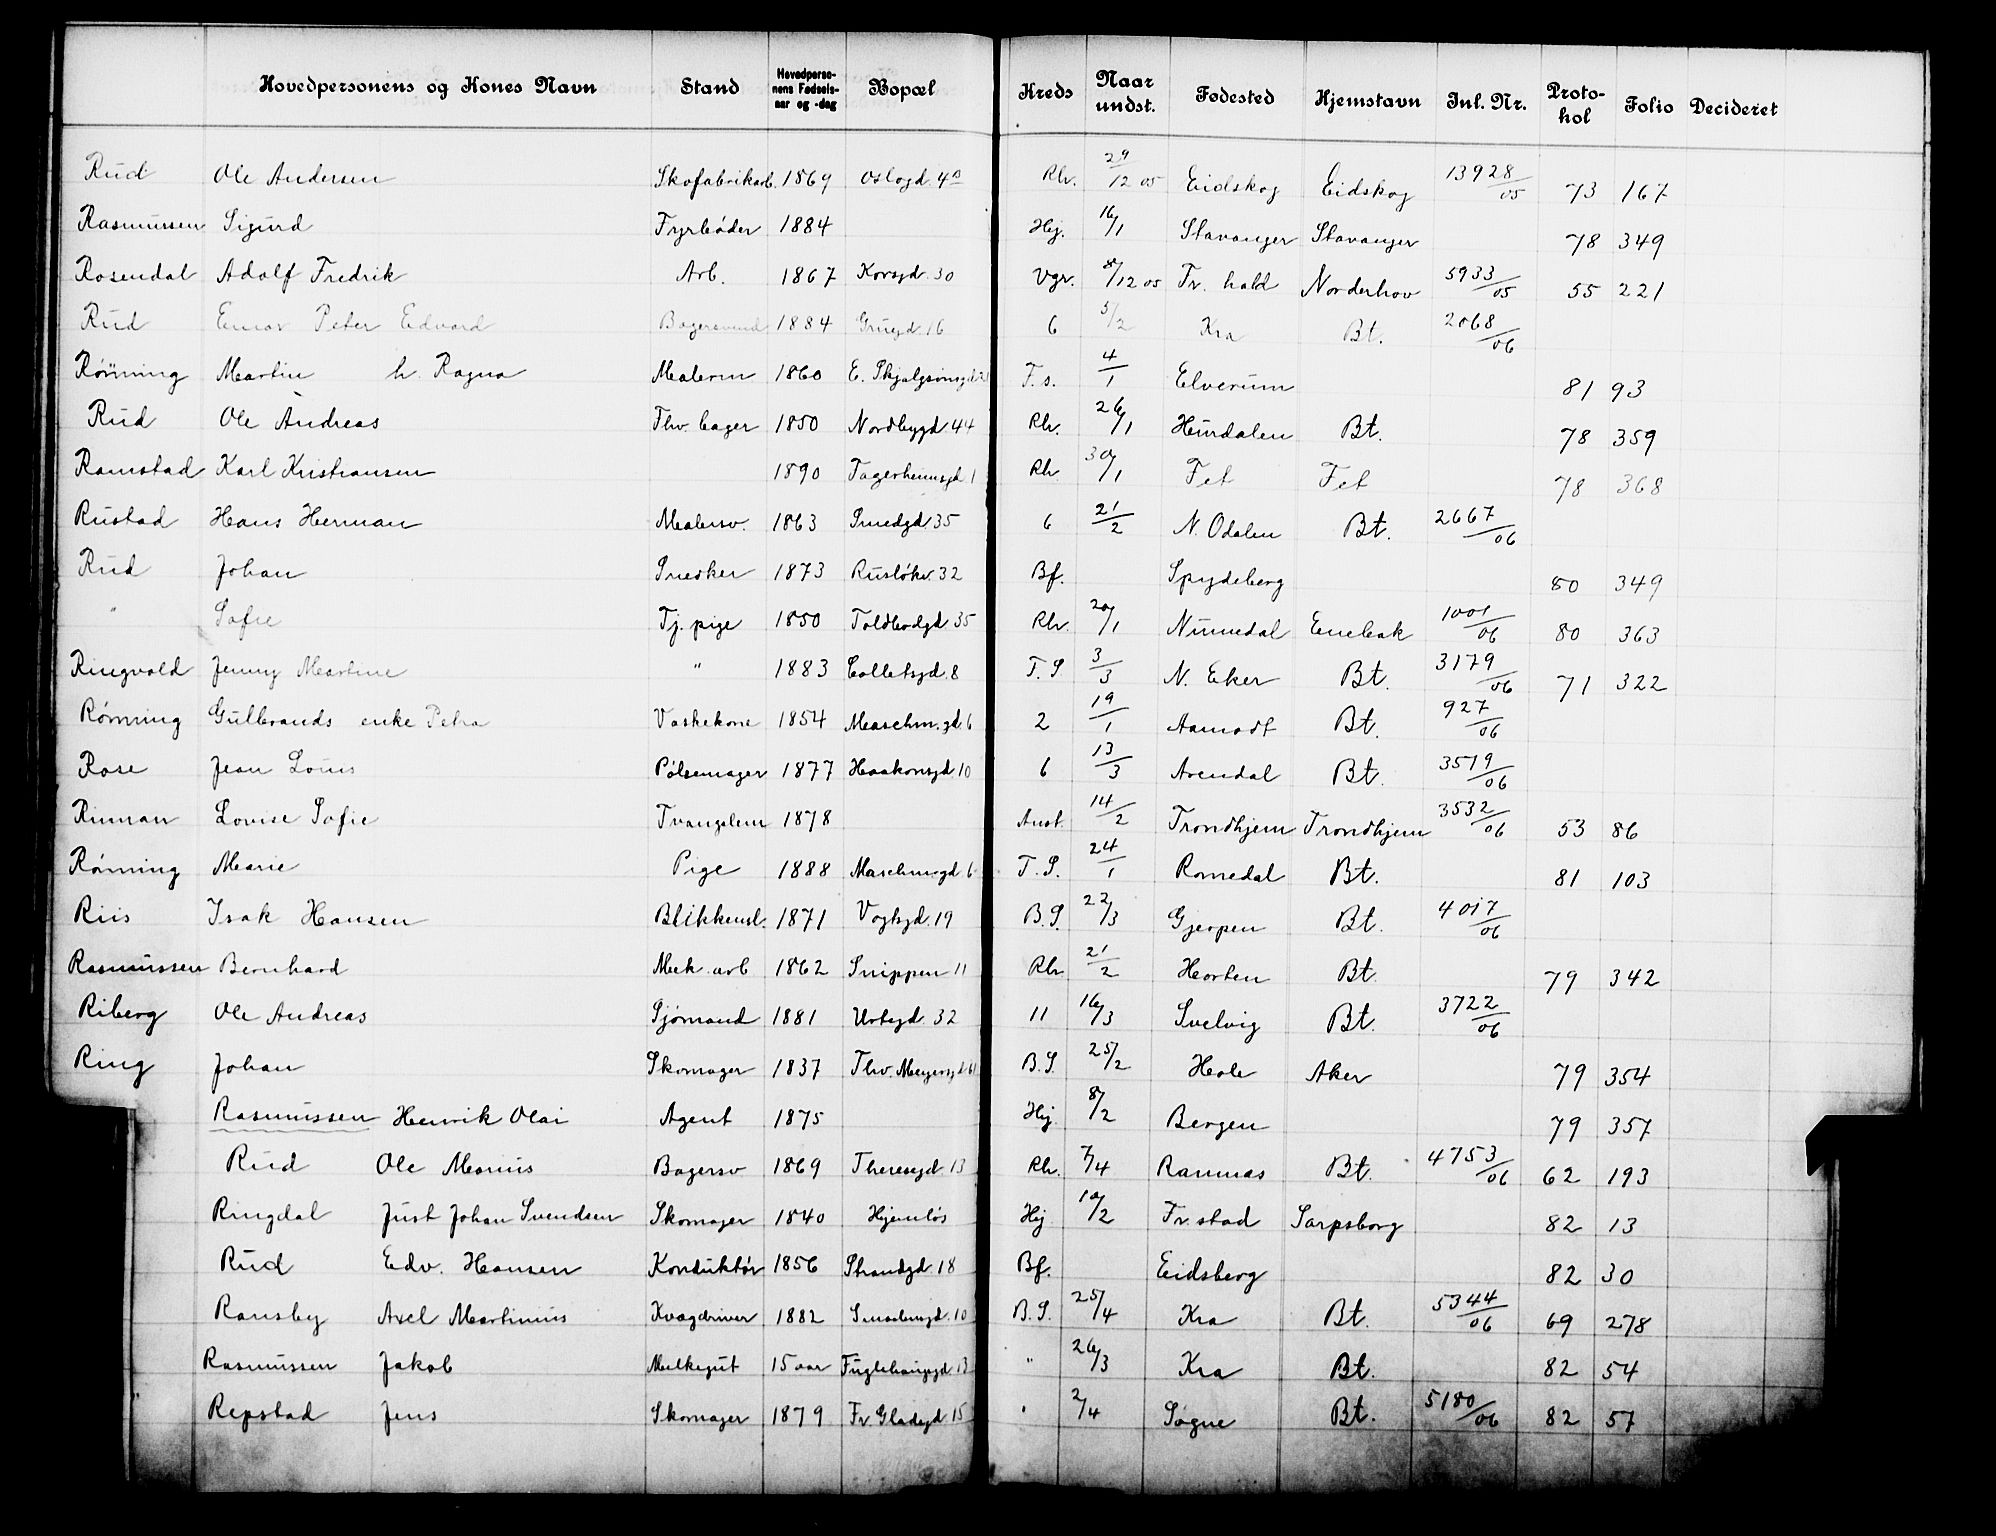 Hovedpersonens og Kones Navn Stand Hovedpersonens Fødselsaar og -dag Bopæl Kreds Naar undst. Fødested Hjemstavn Inl. Nr. Protokol Folio Decideret
Rud Ole Andersen Skofabrikarb. 1869 Oslogd. 4a Rh. 29/12 05 Eidskog Eidskog 13928/05 73 167
Rasmussen Sigurd Fyrbøder 1884 Hej. 16/1 Stavanger Stavanger 78 349
Rosendal Adolf Fredrik Arb. 1867 Korsgd. 30 Vgr. 8/12 05 Fr. hald Norderhov 5933/05 55 221
Rud Einar Peter Edvard Bagersvend 1884 Grugd. 16 6 5/2 Kra Bt. 2068/06
Rönning Martin h. Ragna Malerm 1860 E. Skjalgsønsgd. F. s. 4/1 Elverum 81 93
Rud Ole Andreas Fhv. bager 1850 Nordbygd 44 Rh. 26/1 Hurdalen Bt. 78 359
Ramstad Karl Kristiansen 1890 Fagerheimsgd. 1 Rh. 30/1 Fet Fet 78 368
Rustad Hans Herman Malersv. 1863 Smedgd. 35 6 21/2 N. Odalen Bt. 2667/06
Rud Johan Snedker 1873 Rusløkv. 32 Bf. Spydeberg 80 349
" Sofie Tj. pige 1850 Toldbodgd 35 Rh. 20/1 Nannestad Enebak 1001/06 80 363
Ringvold Jenny Martine " 1883 Colletsgd. 8 T. S 3/3 N. Eker Bt. 3179/06 71 322
Rønning Gulbrands enke Petra Vaskekone 1854 Maschin. gd. 6 2 19/1 Aamodt Bt. 927/06
Rose Jean Louis Pølsemager 1877 Haakonsgd. 10 6 13/3 Arendal Bt. 3519/06
Rinnan Lovise Sofie Tvangslem 1878 Anst. 14/2 Trondhjem Trondhjem 3532/06 53 86
Rønning Marie Pige 1888 Maschinsgd. 6 T. S. 24/1 Romedal Bt. 81 103
Riis Isak Hansen Blikkensl. 1871 Vogtsgd. 19 B. S. 22/3 Gjerpen Bt. 4017/06
Rasmussen Bernhard Mek. arb 1862 Snippen 11 Rh. 21/2 Horten Bt. 79 342
Riberg Ole Andreas Sjømand 1881 Urtegd. 32 11 16/3 Svelvig Bt. 3722/06
Ring Johan Skomager 1837 Thv. Meyersgd. 61 B. S. 25/2 Hole Aker 79 354
Rasmussen Henrik Olai Agent 1875 Hej 8/2 Bergen 79 357
Rud Ole Marius Bagersv. 1869 Theresegd. 13 Rh. 7/4 Ramnas Bt. 4753/06 62 193
Ringdal Just Johan Svendsen Skomager 1840 Hjemløs Hej 10/2 Fr. stad Sarpsborg 82 13
Rud Edv. Hansen Konduktør 1856 Strandgd. 18 Bf. Eidsberg 82 30
Ransby Axel Martinius Kvægdriver 1882 Smaalensgd. 10 B. S. 25/4 Kra Bt. 5344/06 69 278
Rasmussen Jakob Melkegut 15 aar Fuglehauggd. 13 " 26/3 Kra Bt. 82 54
Repstad Jens Skomager 1879 Fr. Gladsgd. 15 " 2/4 Søgne Bt. 5180/06 82 57